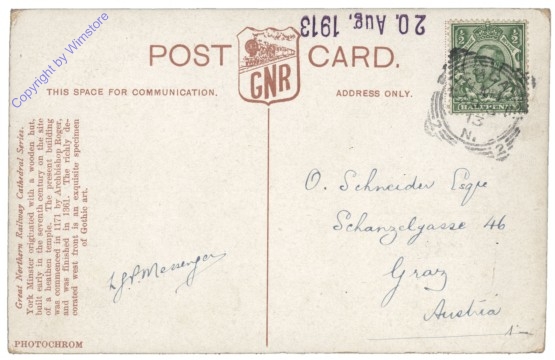 Copyright by Wimstore
POST CARD.
GNR
20. Aug. 1913
HALFPENNY
13
N.
2
THIS SPACE FOR COMMUNICATION.
ADDRESS ONLY.
Great Northern Railway Cathedral Series.
York Minster originated with a wooden hut,
built early in the seventh century on the site
of a heathen temple. The present building
was commenced in 1171 by Archbishop Roger,
and was finished in 1361. The richly de-
corated west front is an exquisite specimen
of Gothic art.
Messenger
O. Schneider Esqre
Schangelgasse 46
Graz
Austria
PHOTOCHROM